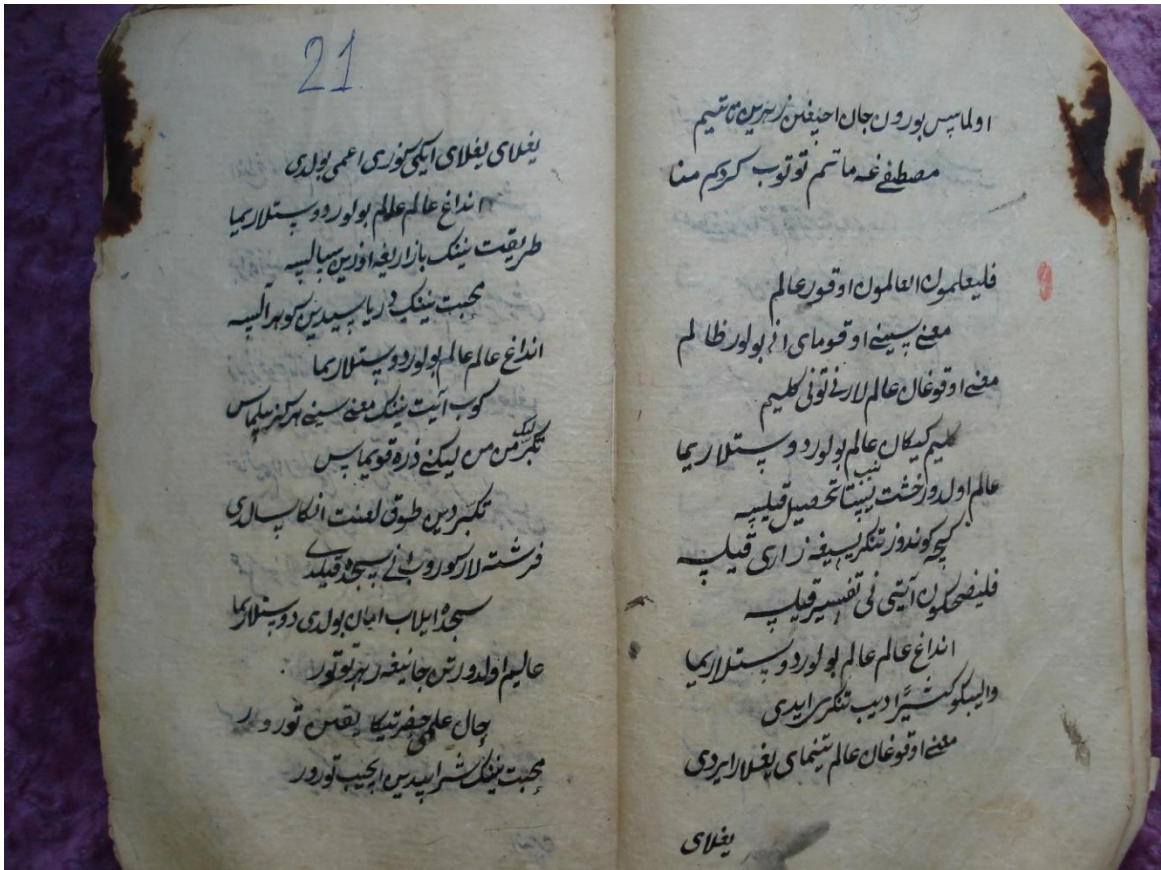 اولماس بورون جان اجیغین زهرین تاتیم
مصطفی غه ماتم توتوب کردیم منا
فلیعلمون العالمون اوقور عالم
معنی سینی اوقومای انی بولور ظالم
معنی اوقوغان عالم لارنی تونی کلیم
کلیم کیکان عالم بولور دوستلاریما
عالم اولدور خشت یستنیب تحصیل قیلسه
کیچه کوندوز تنکریسیغه زاری قیلسه
فلیضحکون آیتی نی تفسیر قیلسه
انداغ عالم عالم بولور دوستلاریما
والیبکو کثیرا دیب تنکری ایدی
معنی اوقوغان عالم تینمای یغلار ایردی
یغلای
21
یغلای یغلای ایکی کوزی اعمی بولدی
انداغ عالم عالم بولور دوستلاریما
طریقت نینک بازاریغه اوزین سالسه
محبت نینک دریاسیدین کوهر آلسه
انداغ عالم عالم بولور دوستلاریما
کوب آیت نینک معنی سینی هرکز بیلماس
تکبرلیک من من لیکنی ذره قویماس
تکبردین طوق لعنت انکا سالدی
فرشته لار کوروب انی سجده قیلدی
سجده ایلاب امان بولدی دوستلاریما
عالیم اولدور تن جانیغه زهر توتور
حال علمی حضرتیکا یقین تورور
محبت نینک شرابیدین ایچیب تورور